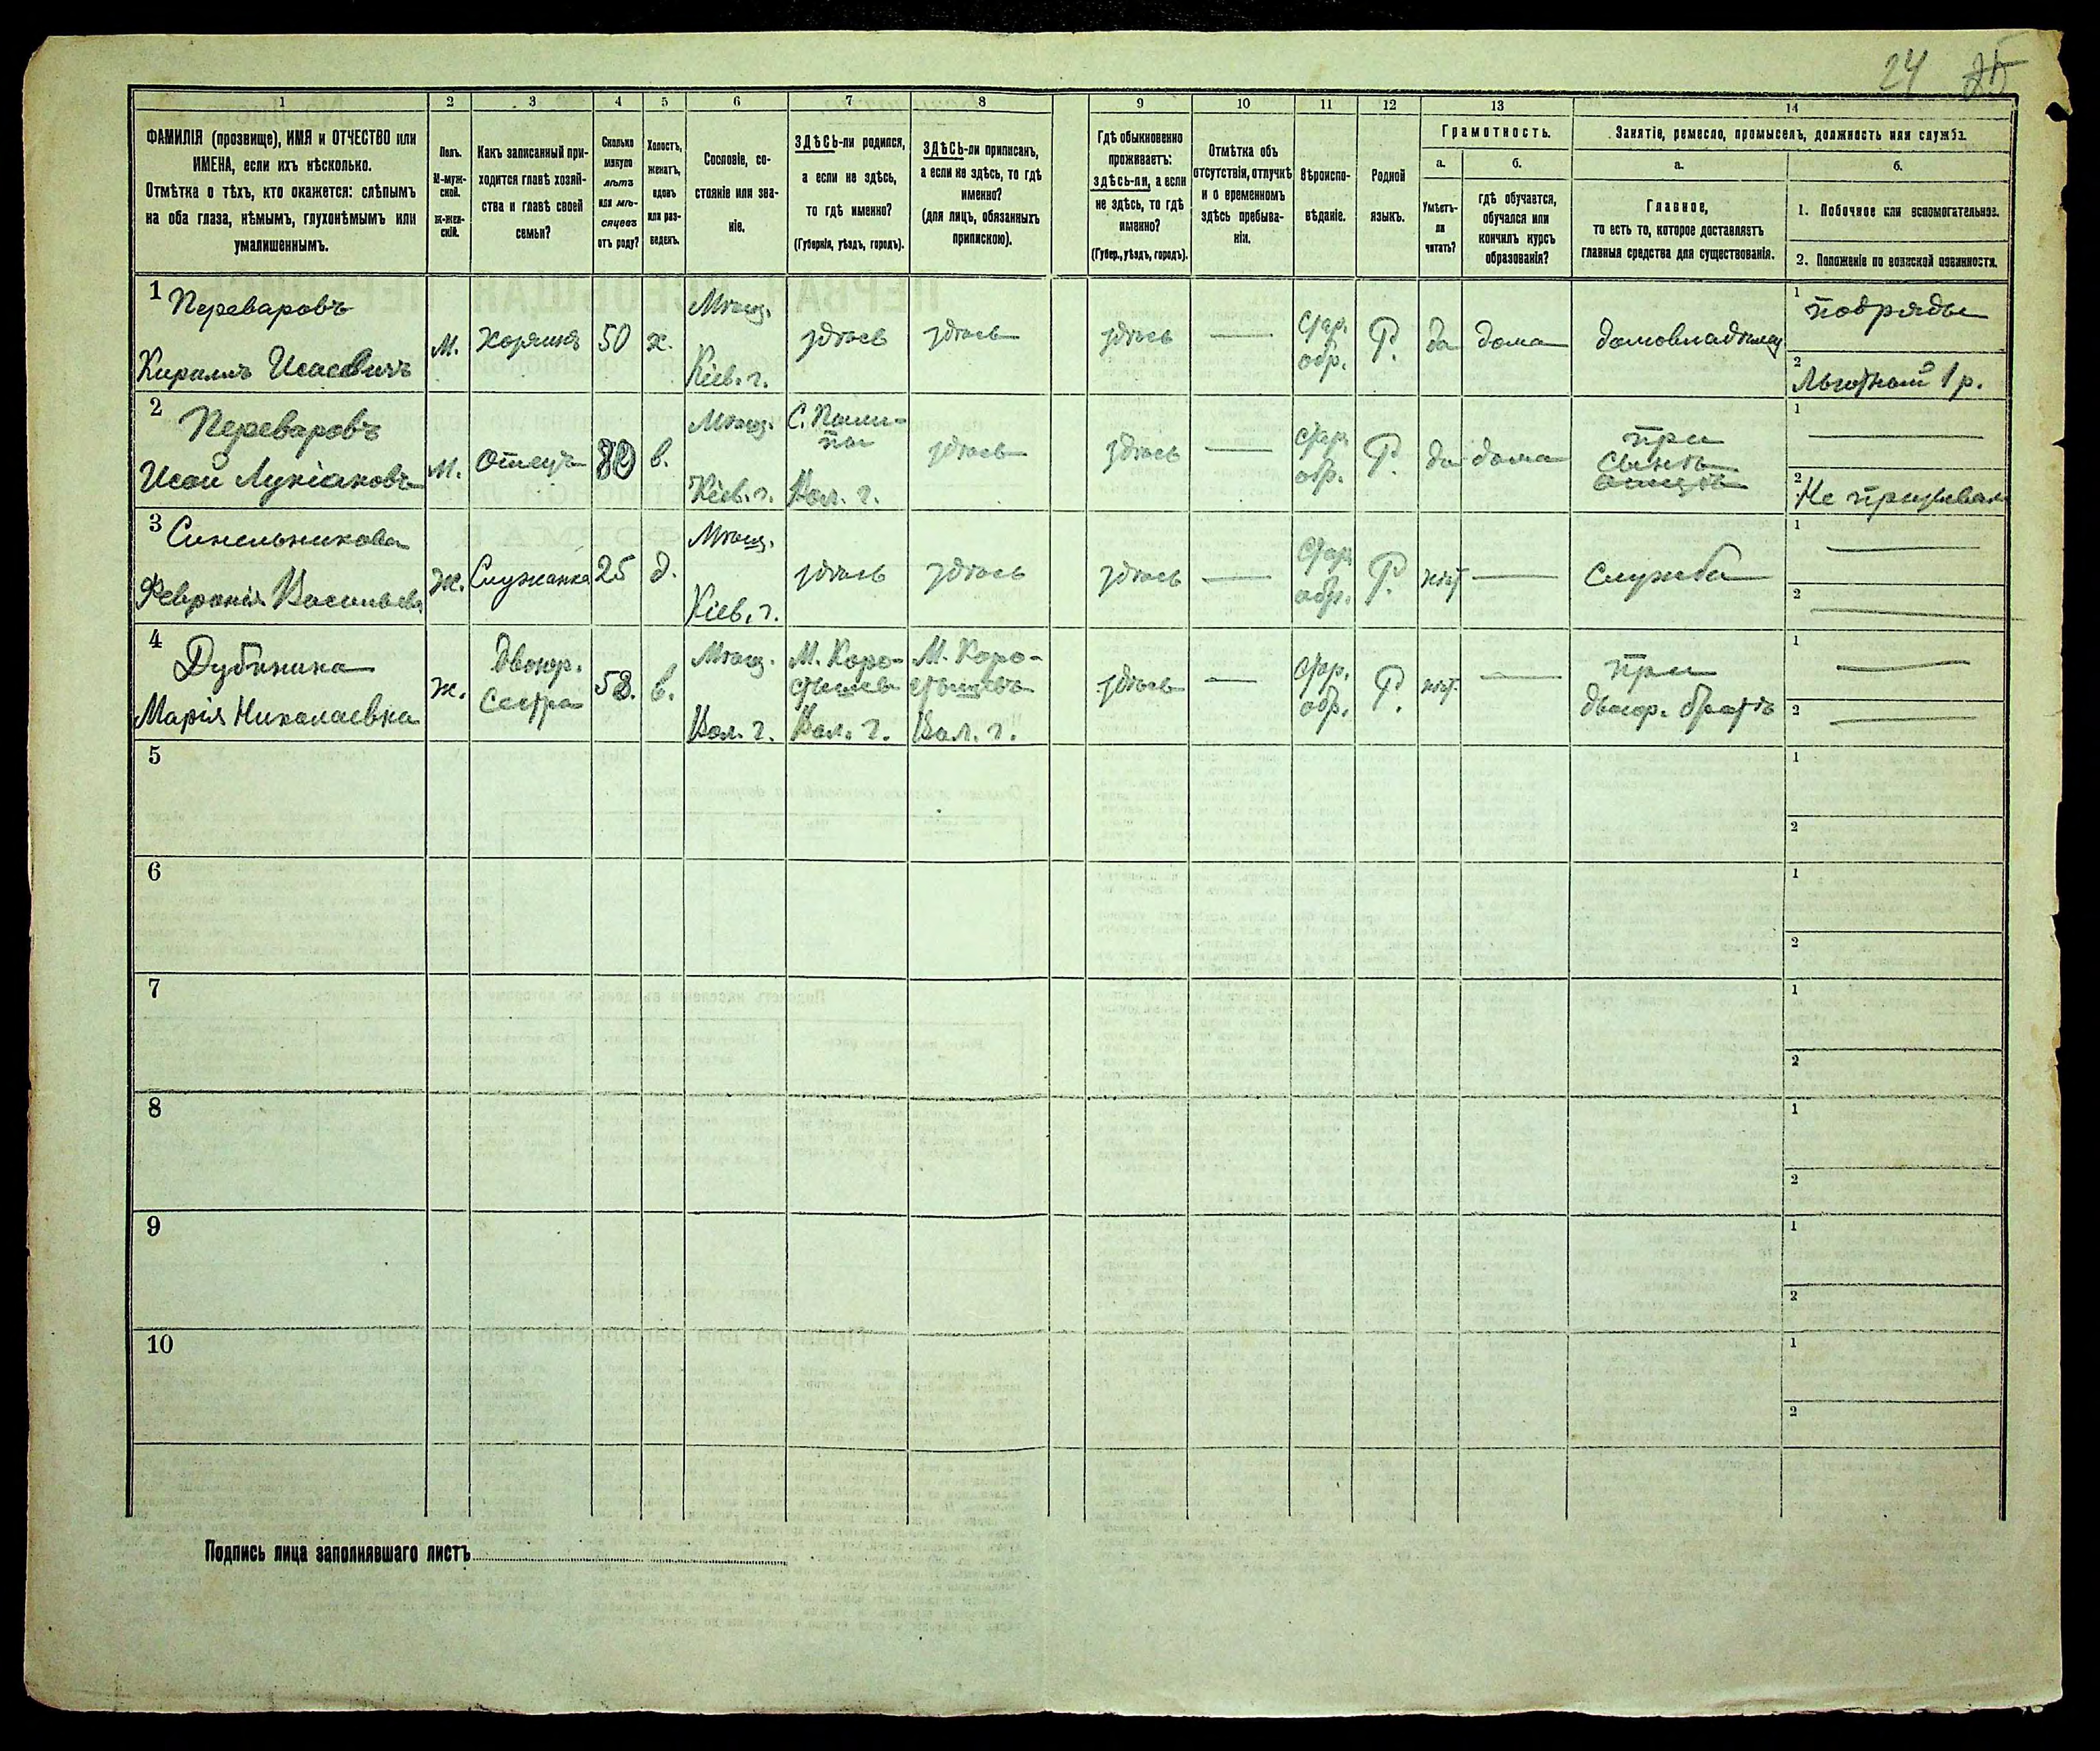 24 25
1 2 3 4 5 6 7 8 9 10 11 12 13 14
ФАМИЛІЯ (прозвище), ИМЯ и ОТЧЕСТВО или
ИМЕНА, если ихъ нѣсколько.
Отмѣтка о тѣхъ, кто окажется: слѣпымъ
на оба глаза, нѣмымъ, глухонѣмымъ или
умалишеннымъ.
Полъ.
М-муж-
ской.
Ж-жен-
скій.
Какъ записанный при-
ходится главѣ хозяй-
ства и главѣ своей
семьи?
Сколько
минуло
лѣтъ
или мѣ-
сяцевъ
отъ роду?
Холостъ,
женатъ,
вдовъ
или раз-
веденъ.
Сословіе, со-
стояніе или зва-
ніе.
ЗДѢСЬ-ли родился,
а если не здѣсь,
то гдѣ именно?
(Губернія, уѣздъ, городъ).
ЗДѢСЬ-ли приписанъ,
а если не здѣсь, то гдѣ
именно?
(для лицъ, обязанныхъ
припискою).
Гдѣ обыкновенно
проживаетъ:
здѣсь-ли, а если
не здѣсь, то гдѣ
именно?
(Губер., уѣздъ, городъ).
Отмѣтка объ
отсутствіи, отлучкѣ
и о временномъ
здѣсь пребыва-
ніи.
Вѣроиспо-
вѣданіе.
Родной
языкъ.
Грамотность.
а.
Умѣетъ-
ли
читать?
б.
гдѣ обучается,
обучался или
кончилъ курсъ
образованія?
Занятіе, ремесло, промыселъ, должность или служба.
а.
Главное,
то есть то, которое доставляетъ
главныя средства для существованія.
б.
1. Побочное или вспомогательное.
2. Положеніе по воинской повинности.
1 Переваровъ
Кириллъ Исаевичъ
М.
Хозяинъ
50
х.
Мѣщ.
Кіев. г.
здѣсь
здѣсь
здѣсь
Стар.
обр.
Р.
да
дома
домовладѣлец
1 подряды
2 Льготный 1 р.
2 Переваровъ
Исай Лукіановъ
М.
Отецъ
в.
Мѣщ.
Кіев. г.
Вол. г.
здѣсь
здѣсь
стар.
обр.
Р.
да
дома
при
сынѣ
1
2 Не призывал
3 Синельникова
Февронія Васильева
Ж.
Служанка
25
д.
Мѣщ.
Кіев. г.
здѣсь
здѣсь
здѣсь
Стар.
обр.
Р.
нѣт
Служба
1
2
4 Дубинина
Марія Николаевна
ж.
Двоюр.
Сестра
в.
Мѣщ.
Вол. г.
М. Коро-
стышев
Вол. г.
М. Коро-
стышевъ
Вол. г.
здѣсь
Стар.
обр.
Р.
нѣт.
при
двоюр. братѣ
1
2
5
1
2
6
1
2
7
1
2
8
1
2
9
1
2
10
1
2
Подпись лица заполнявшаго листъ